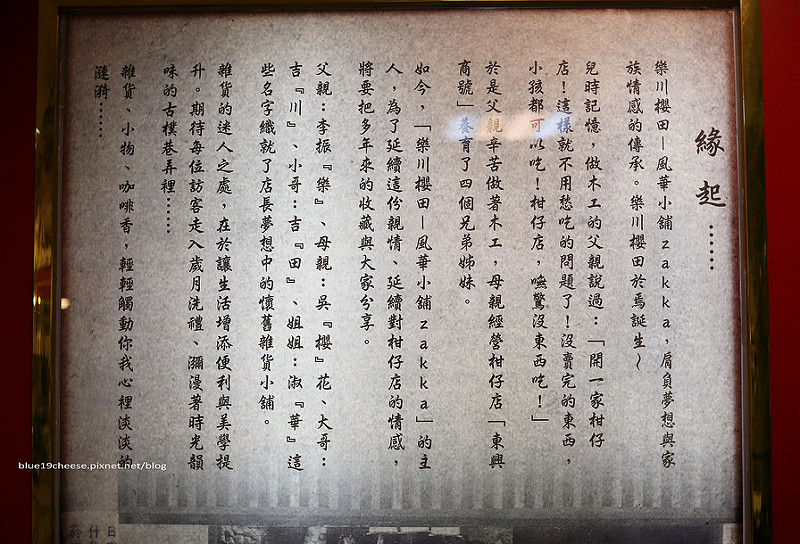 緣起……
樂川櫻田—風華小舖zakka，肩負夢想與家
族情感的傳承。樂川櫻田於焉誕生～
兒時記憶，做木工的父親說過：「開一家柑仔
店！這樣就不用愁吃的問題了！沒賣完的東西，
小孩都可以吃！柑仔店，嘸驚沒東西吃！」
於是父親辛苦做著木工，母親經營柑仔店「東興
商號」養育了四個兄弟姊妹。
如今，「樂川櫻田—風華小舖zakka」的主
人，為了延續這份親情、延續對柑仔店的情感，
將要把多年來的收藏與大家分享。
父親：李振『樂』、母親：吳『櫻』花、大哥：
吉『川』、小哥：吉『田』、姐姐：淑『華』這
些名字織就了店長夢想中的懷舊雜貨小舖。
雜貨的迷人之處，在於讓生活增添便利與美學提
升。期待每位訪客走入歲月洗禮、瀰漫著時光韻
味的古樸巷弄裡……
雜貨、小物、咖啡香，輕輕觸動你我心裡淡淡的
漣漪……
blue19cheese.pixnet.net/blog